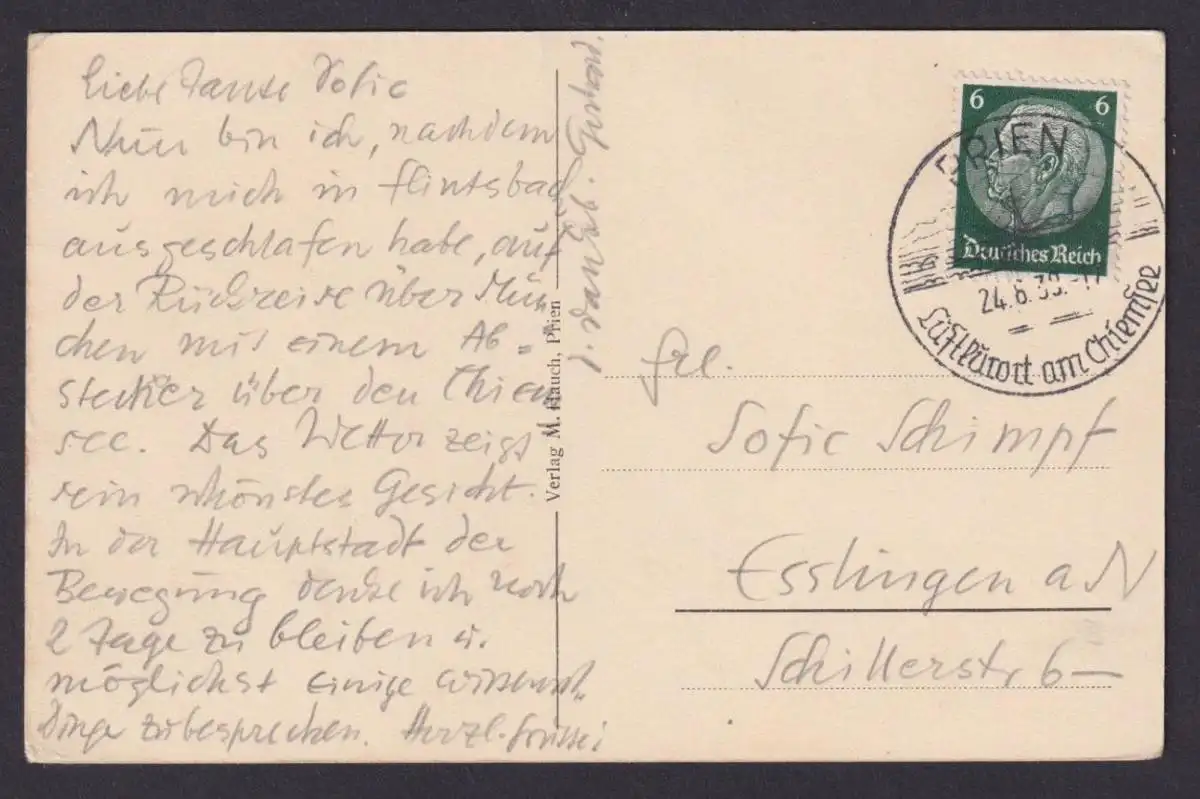 Liebe Tante Sofie
Nun bin ich, nachdem
ich mich in Flintsbach
ausgeschlafen habe, auf
der Rückreise über Mün-
chen mit einem Ab=
stecher über den Chiem
see. Das Wetter zeigt
sein schönstes Gesicht.
In der Hauptstadt der
Bewegung denke ich noch
2 Tage zu bleiben u.
möglichst einige wissensch.
Dinge zu besprechen. Herzl. Grüsse
Gerhard.
Verlag M. Hauch, Prien
6 6
Deutsches Reich
PRIEN
24.6.39.-17
Luftkurort am Chiemsee
Frl.
Sofie Schimpf
Esslingen a N
Schillerstr. 6